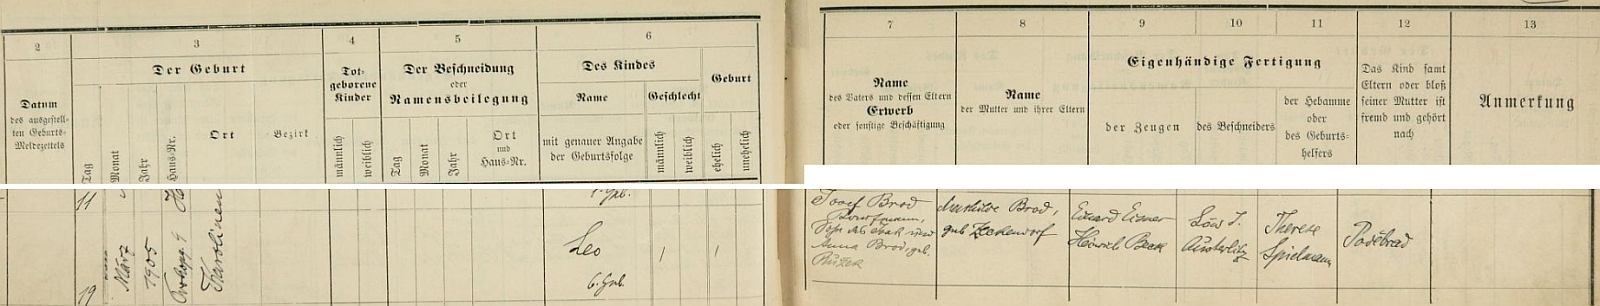 2
3
4
5
6
7
8
9
10
11
12
13
Datum
des ausgestell-
ten Geburts-
Meldezettels
Der Geburt
Tag
Monat
Jahr
Haus-Nr.
Ort
Bezirk
Tot-
geborene
Kinder
männlich
weiblich
Der Beschneidung
oder
Namensbeilegung
Tag
Monat
Jahr
Ort
und
Haus-Nr.
Des Kindes
Name
mit genauer Angabe
der Geburtsfolge
Geschlecht
männlich
weiblich
Geburt
ehelich
unehelich
Name
des Vaters und dessen Eltern
Erwerb
oder sonstige Beschäftigung
Name
der Mutter und ihrer Eltern
Eigenhändige Fertigung
der Zeugen
des Beschneiders
der Hebamme
oder
des Geburts-
helfers
Das Kind samt
Eltern oder bloß
seiner Mutter ist
fremd und gehört
nach
Anmerkung
11
19
März
1905
Karolinen
Leo
6. Geb.
Josef Brod
Kaufmann,
Sohn des Isak und
Anna Brod, geb.
Růžek
Mathilde Brod,
geb. Zeckendorf
Eduard Eisner
Heinrich Beck
Löw J.
Austerlitz
Therese
Spielmann
Poděbrad